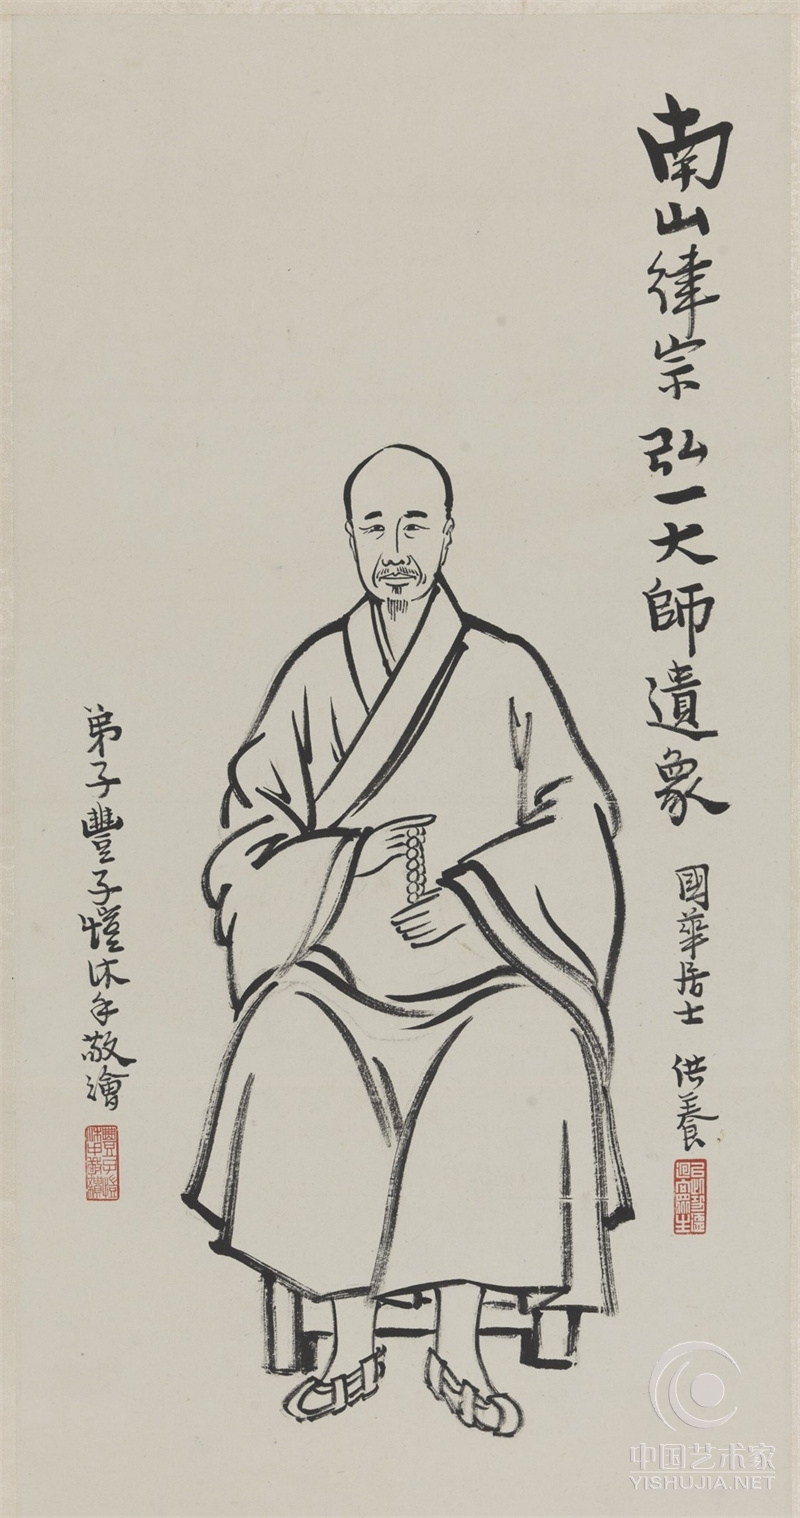 南山律宗弘一大師遺象
國華居士 供養
弟子豐子愷沐手敬繪
中国艺术家
YISHUJIA.NET